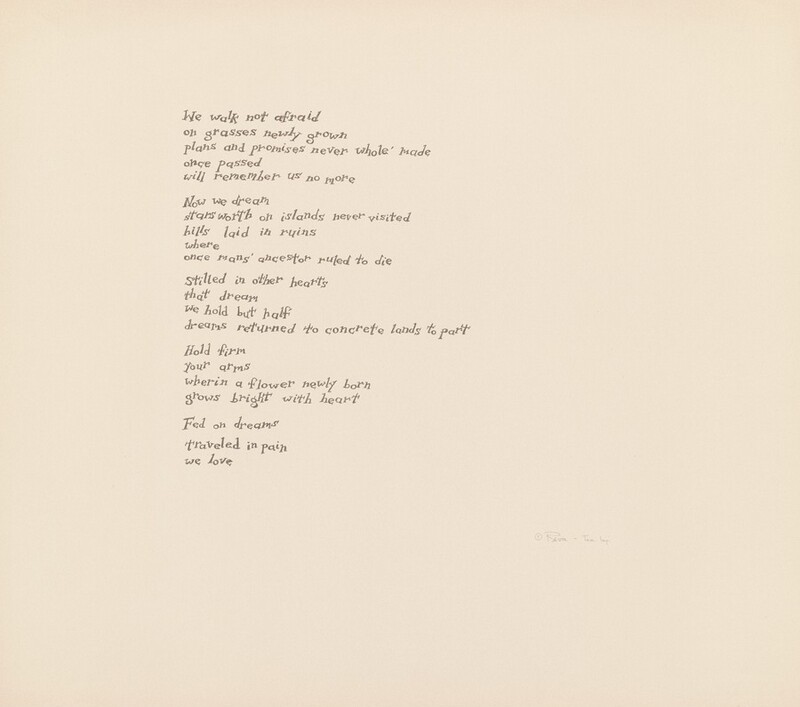 We walk not afraid
on grasses newly grown
plans and promises never whole' made
once passed
will remember us no more
Now we dream
stars worth on islands never visited
hills laid in ruins
where
once mans' ancestor ruled to die
Stilled in other hearts
that dream
we hold but half
dreams returned to concrete lands to part
Hold firm
your arms
wherin a flower newly born
grows bright with heart
Fed on dreams
traveled in pain
we love